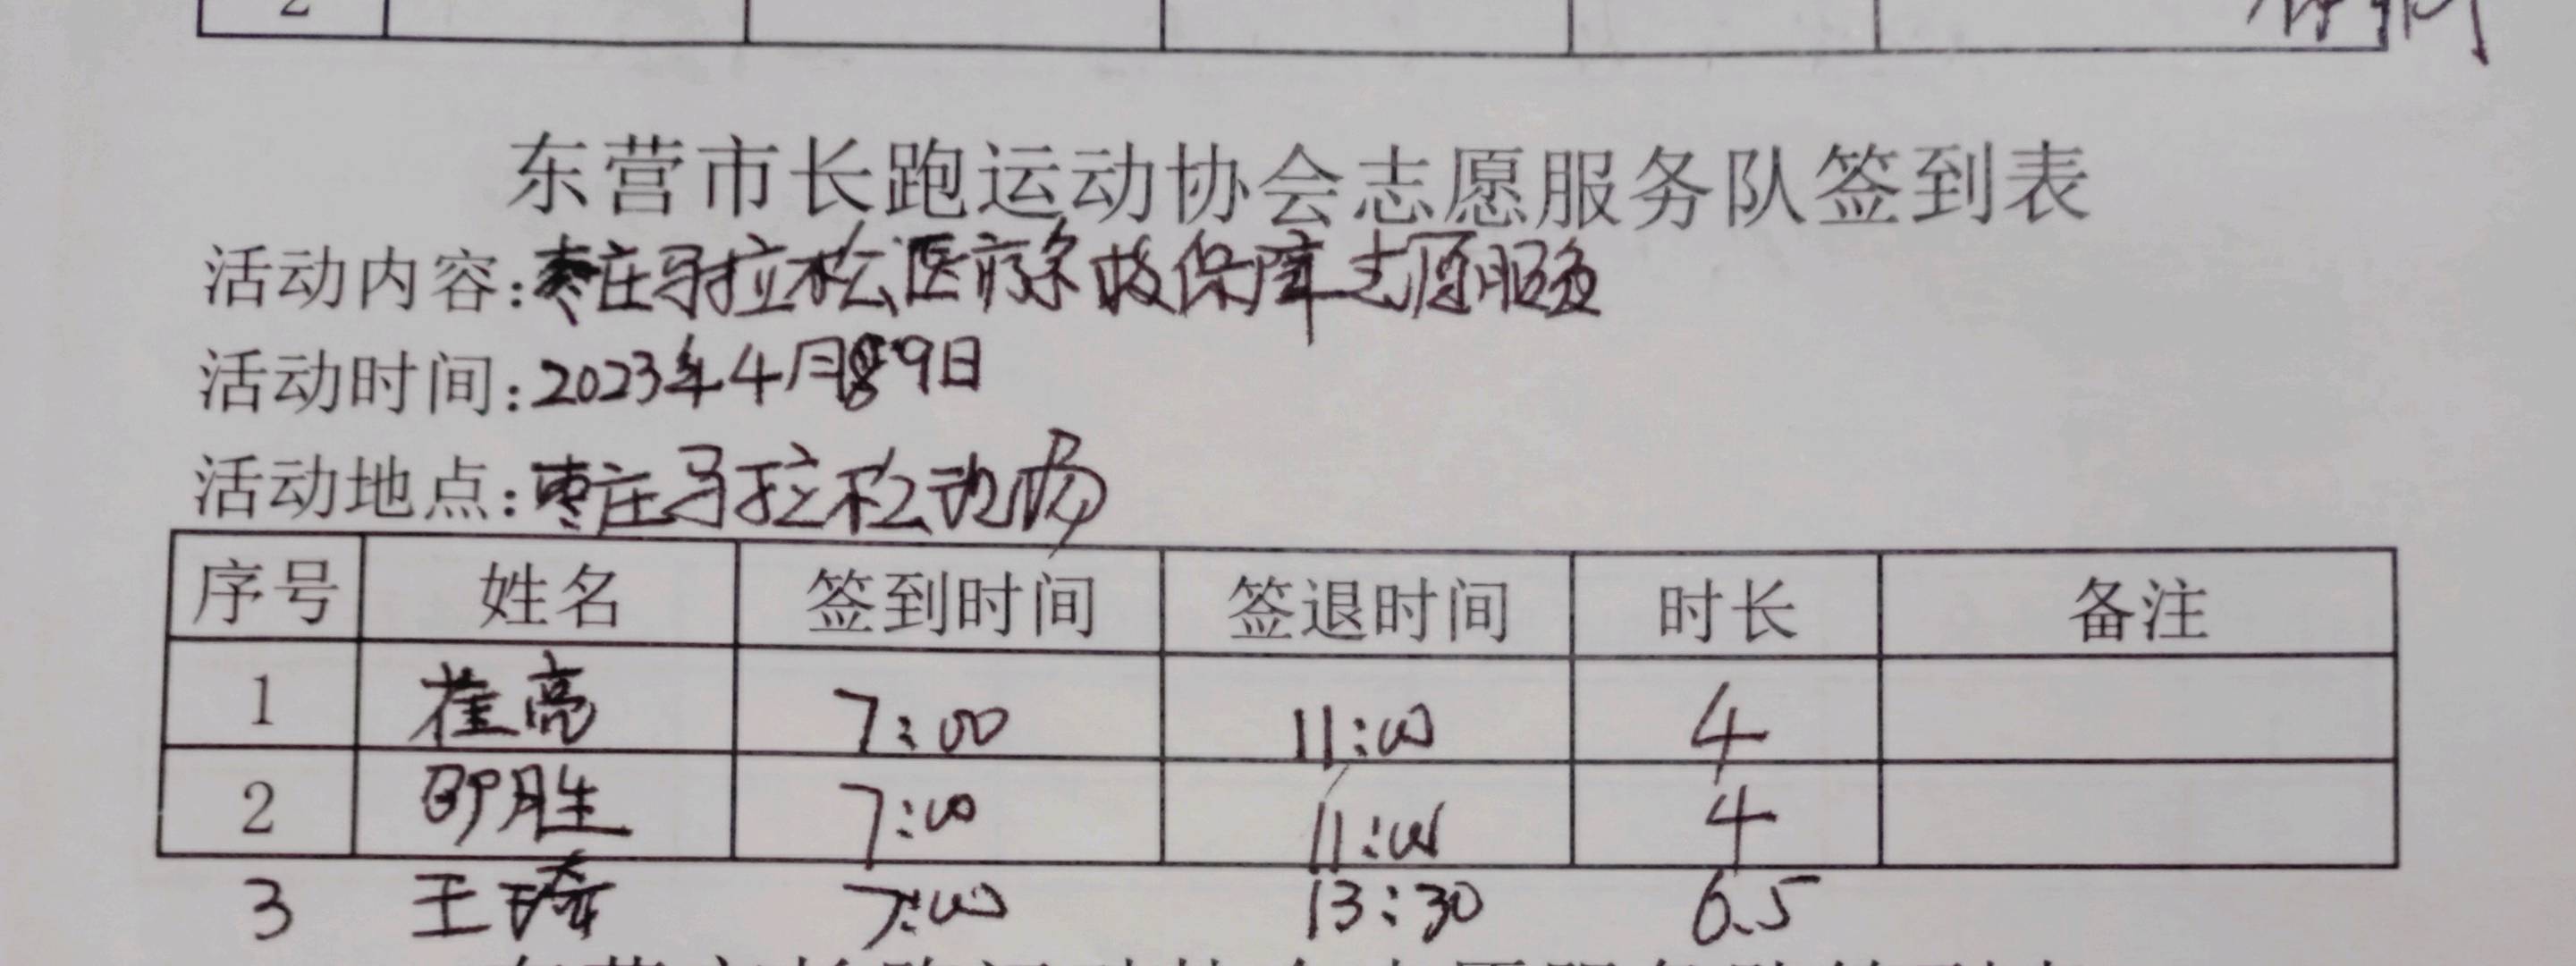 2
东营市长跑运动协会志愿服务队签到表
活动内容:枣庄马拉松医疗急救保障志愿服务
活动时间:2023年4月9日
活动地点:枣庄马拉松动场
序号 姓名 签到时间 签退时间 时长 备注
1 崔亮 7:00 11:00 4
2 邵胜 7:00 11:00 4
3 王琦 7:00 13:30 6.5